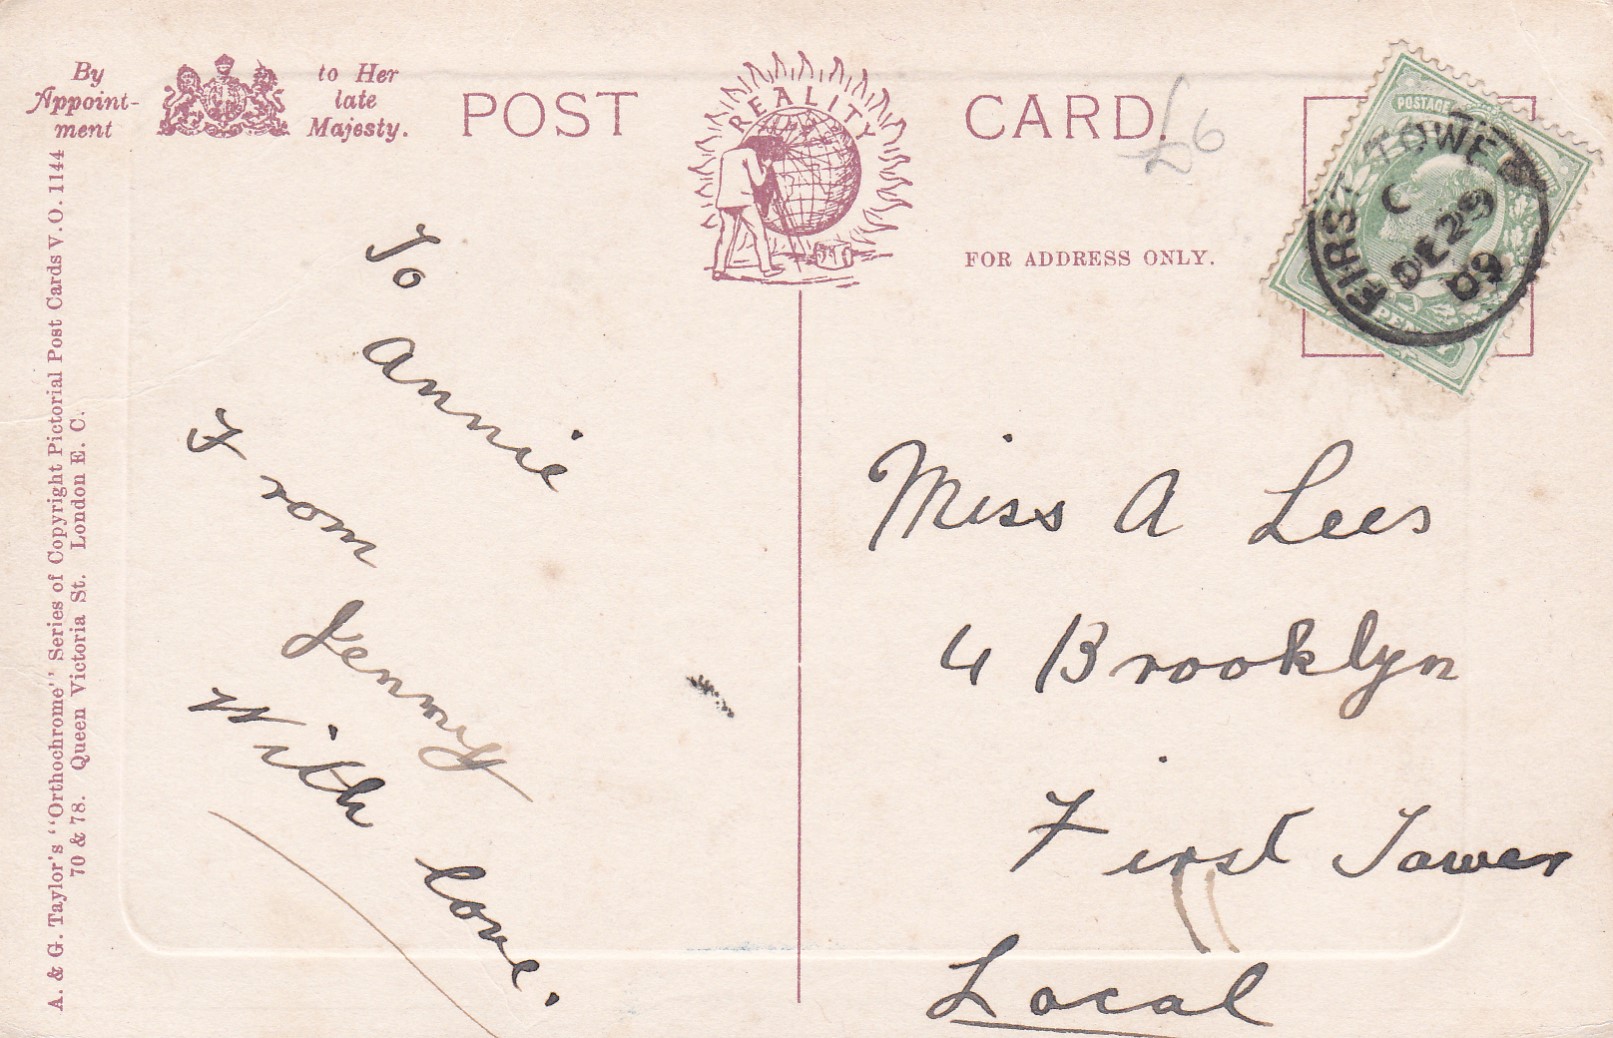 By
Appoint-
ment
to Her
late
Majesty.
POST
REALITY
CARD.
£6
FOR ADDRESS ONLY.
POSTAGE
FIRST TOWER
C
DE 29
09
A. & G. Taylor's "Orthochrome" Series of Copyright Pictorial Post Cards V. O. 1144
70 & 78. Queen Victoria St. London E. C.
To
Annie
From
Jenny
With love.
Miss A Lees
4 Brooklyn
First Tower
Local